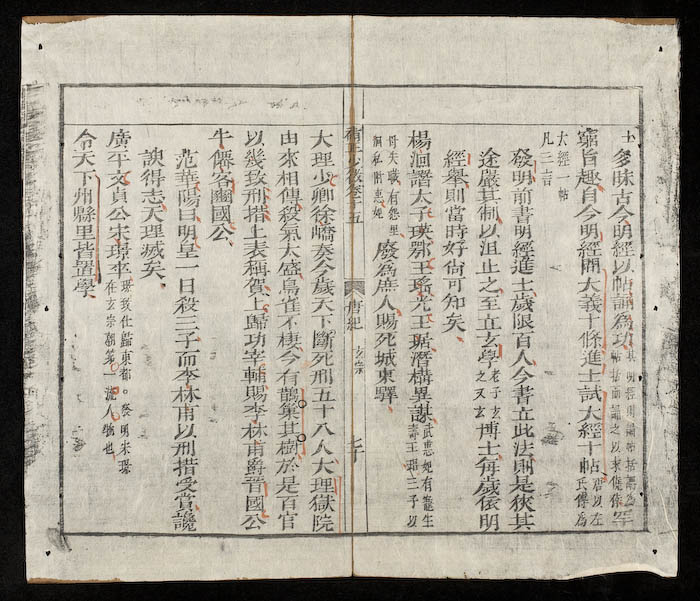 士多昧古今明經以帖誦為功
窮旨趣自今明經問大義十條進士試大經十帖
大經一帖
凡三言
發明前書明經進士歲限百人今書立此法則是狹其
途嚴其制以沮止之至立玄學博士每歲依明
經舉則當時好尚可知矣
楊洄譖太子瑛鄂王瑤光王琚潛構異謀武惠妃有寵生
壽王瑁三子以
母失職有怨
洄私附惠妃
廢為庶人賜死城東驛
少微 五
唐紀 玄宗
大理少卿徐嶠奏今歲天下斷死刑五十八人大理獄院
由來相傳殺氣太盛鳥雀不棲今有鵲巢其樹於是百官
以幾致刑措上表稱賀上歸功宰輔賜李林甫爵晉國公
牛僊客豳國公
范華陽曰明皇一日殺三子而李林甫以刑措受賞讒
諛得志天理滅矣
廣平文貞公宋璟卒
在玄宗朝第一流人物也
令天下州縣里皆置學